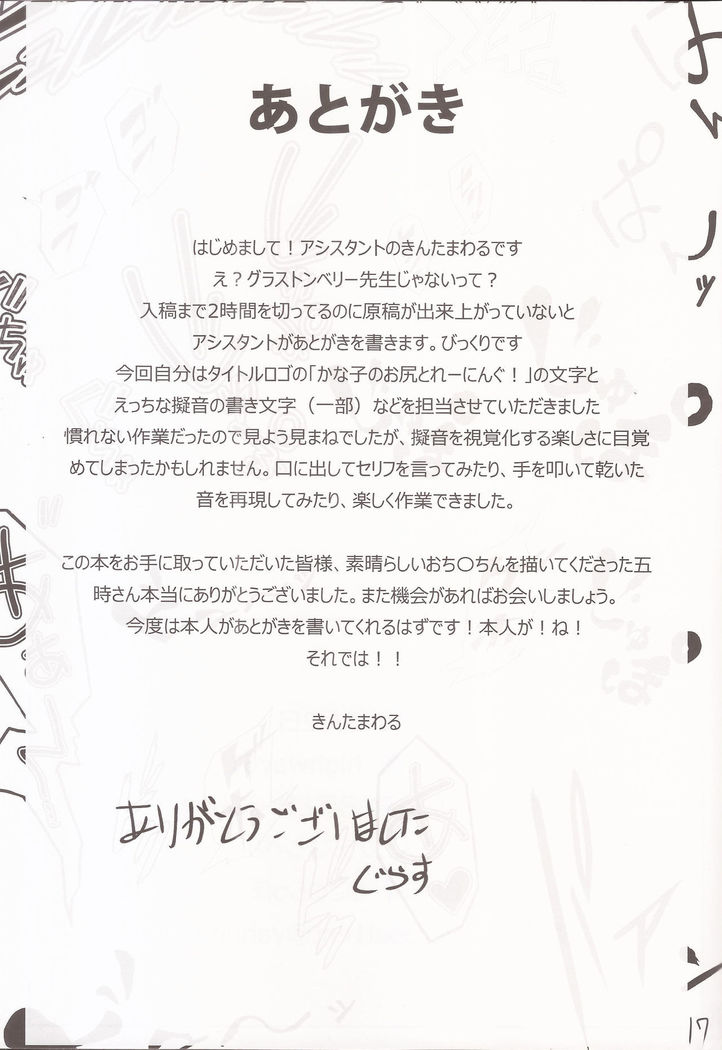 あとがき
はじめまして！アシスタントのきんたまわるです
え？グラストンベリー先生じゃないって？
入稿まで2時間を切ってるのに原稿が出来上がっていないと
アシスタントがあとがきを書きます。びっくりです
今回自分はタイトルロゴの「かな子のお尻とれーにんぐ！」の文字と
えっちな擬音の書き文字（一部）などを担当させていただきました
慣れない作業だったので見よう見まねでしたが、擬音を視覚化する楽しさに目覚
めてしまったかもしれません。口に出してセリフを言ってみたり、手を叩いて乾いた
音を再現してみたり、楽しく作業できました。
この本をお手に取っていただいた皆様、素晴らしいおち〇ちんを描いてくださった五
時さん本当にありがとうございました。また機会があればお会いしましょう。
今度は本人があとがきを書いてくれるはずです！本人が！ね！
それでは！！
きんたまわる
ありがとうございました
ぐらす
17